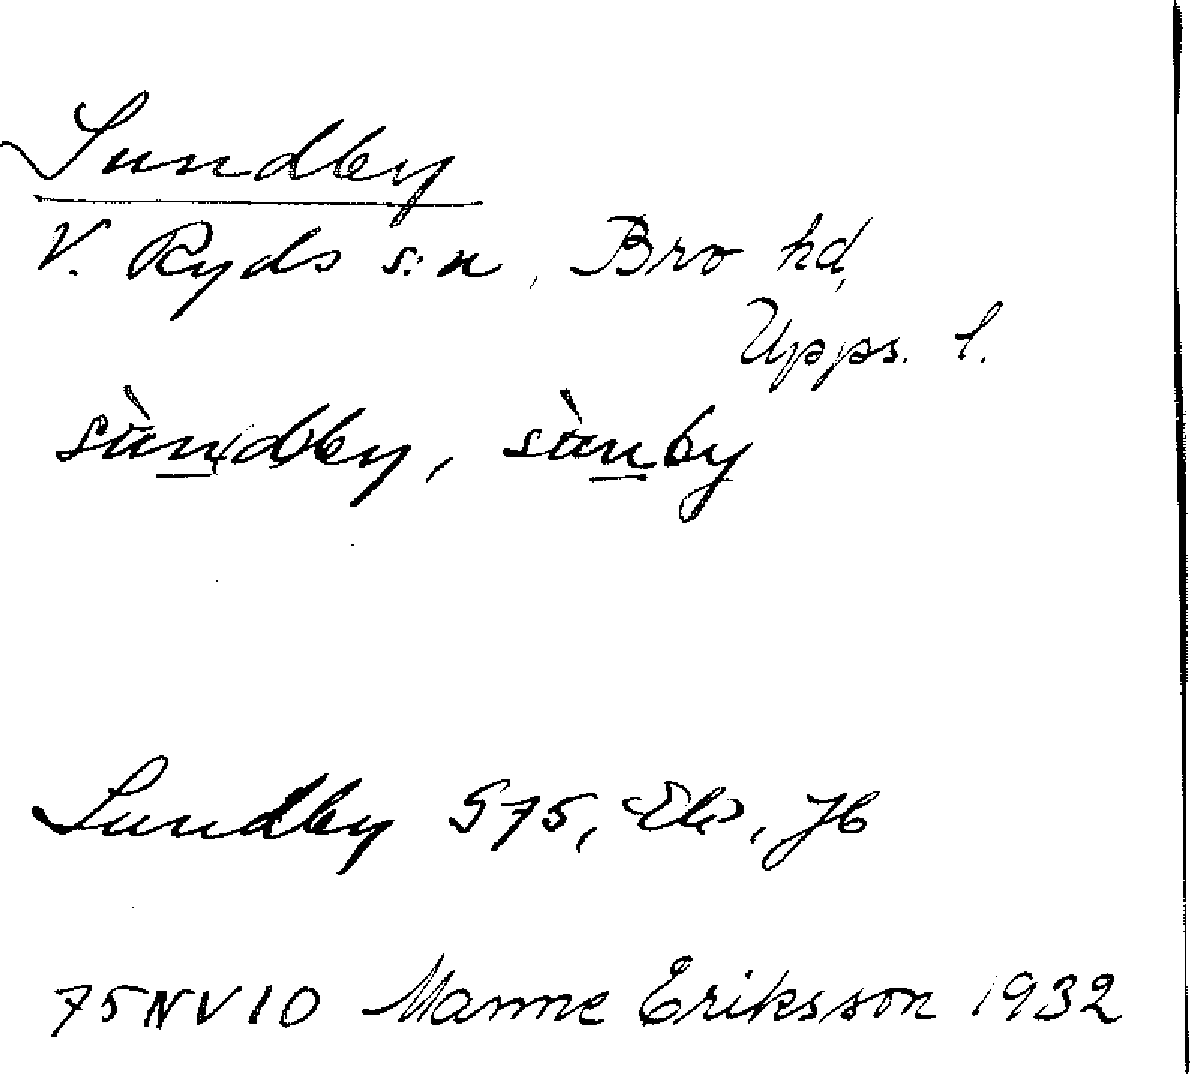 Sundby
V. Ryds s:n, Bro hd,
Upps. l.
sùndby, sùnby
Sundby 575, Ek, Jb
75NV10 Manne Eriksson 1932